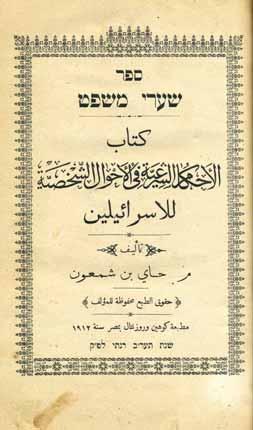 ספר
שערי משפט
كتاب
الاحكام الشرعية في الاحوال الشخصية
للاسرائيليين
تأليف
م حاي بن شمعون
حقوق الطبع محفوظة للمؤلف
مطبعة كوهين وروزنتال بمصر سنة ١٩١٢
שנת תער״ב לפ״ק